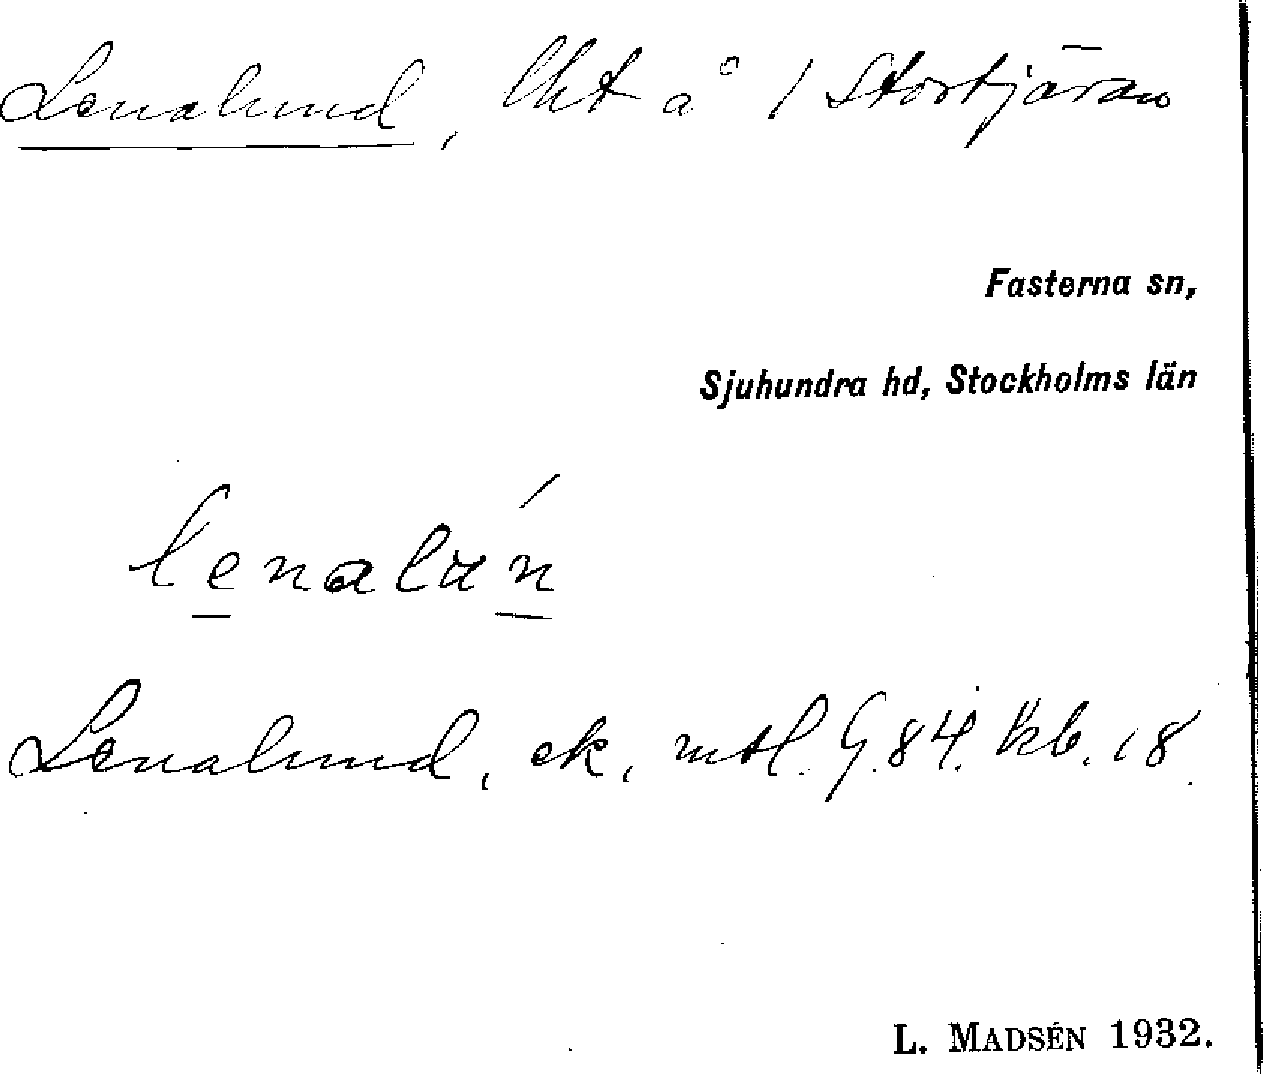 Lenalund, lht å 1 Stortjäran
Fasterna sn,
Sjuhundra hd, Stockholms län
lenalún
Lenalund, ek, mtl. G.84. kb. 18.
L. MADSÉN 1932.